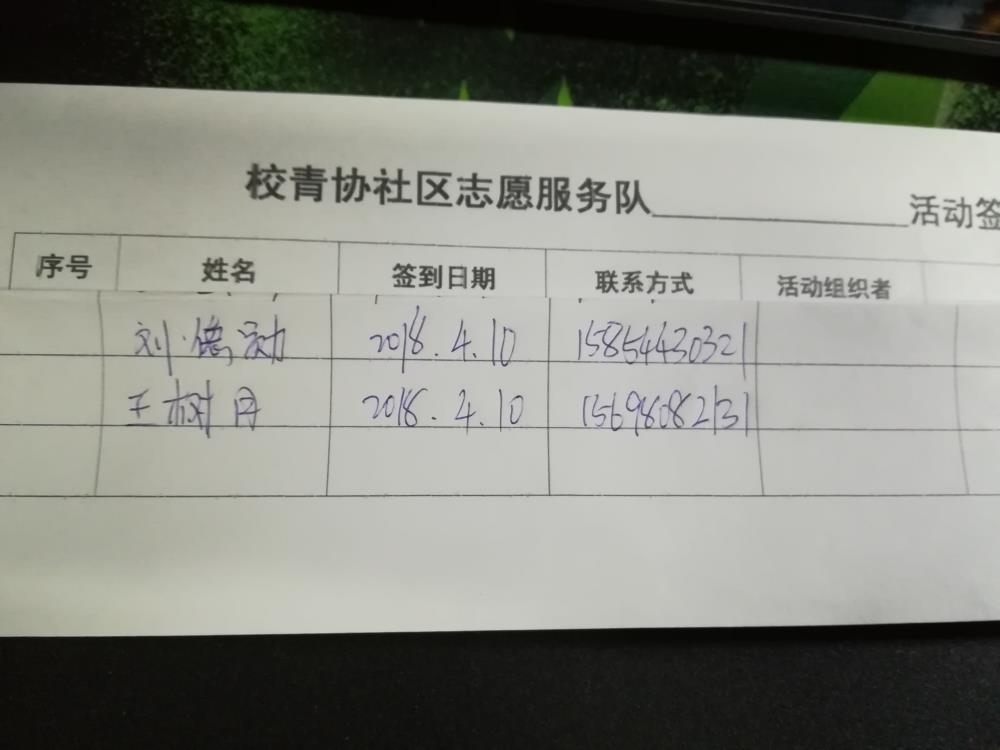 校青协社区志愿服务队____________活动签
序号 姓名 签到日期 联系方式 活动组织者
刘德勋 2018.4.10 15854430321
王树丹 2018.4.10 15698082131